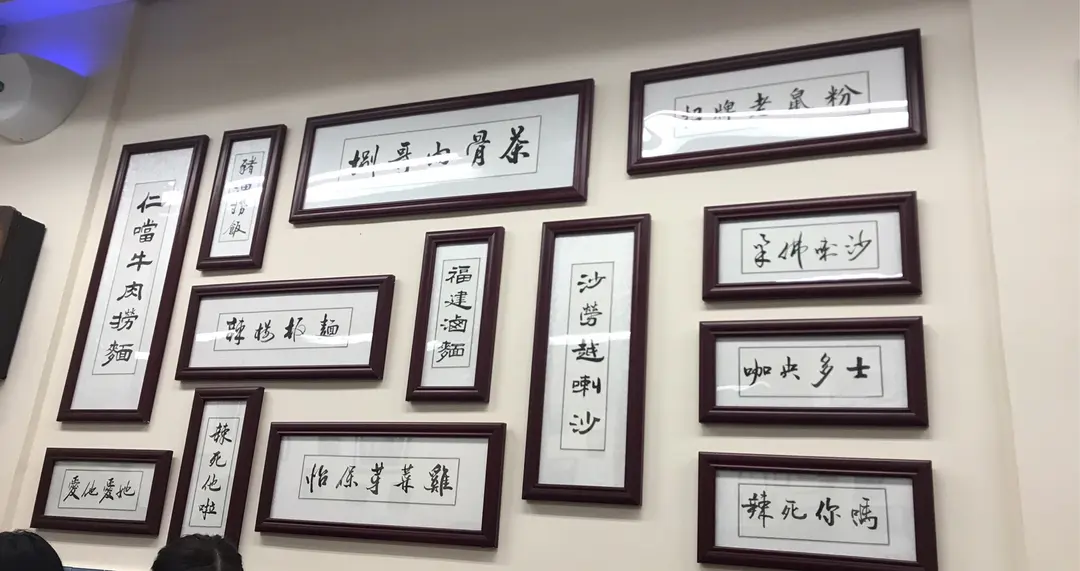 仁噹牛肉撈麵
豬油撈飯
捌哥肉骨茶
招牌老鼠粉
辣椒板麵
福建滷麵
沙勞越喇沙
柔佛喇沙
咖央多士
愛他愛她
辣死他啦
怡保芽菜雞
辣死你嗎